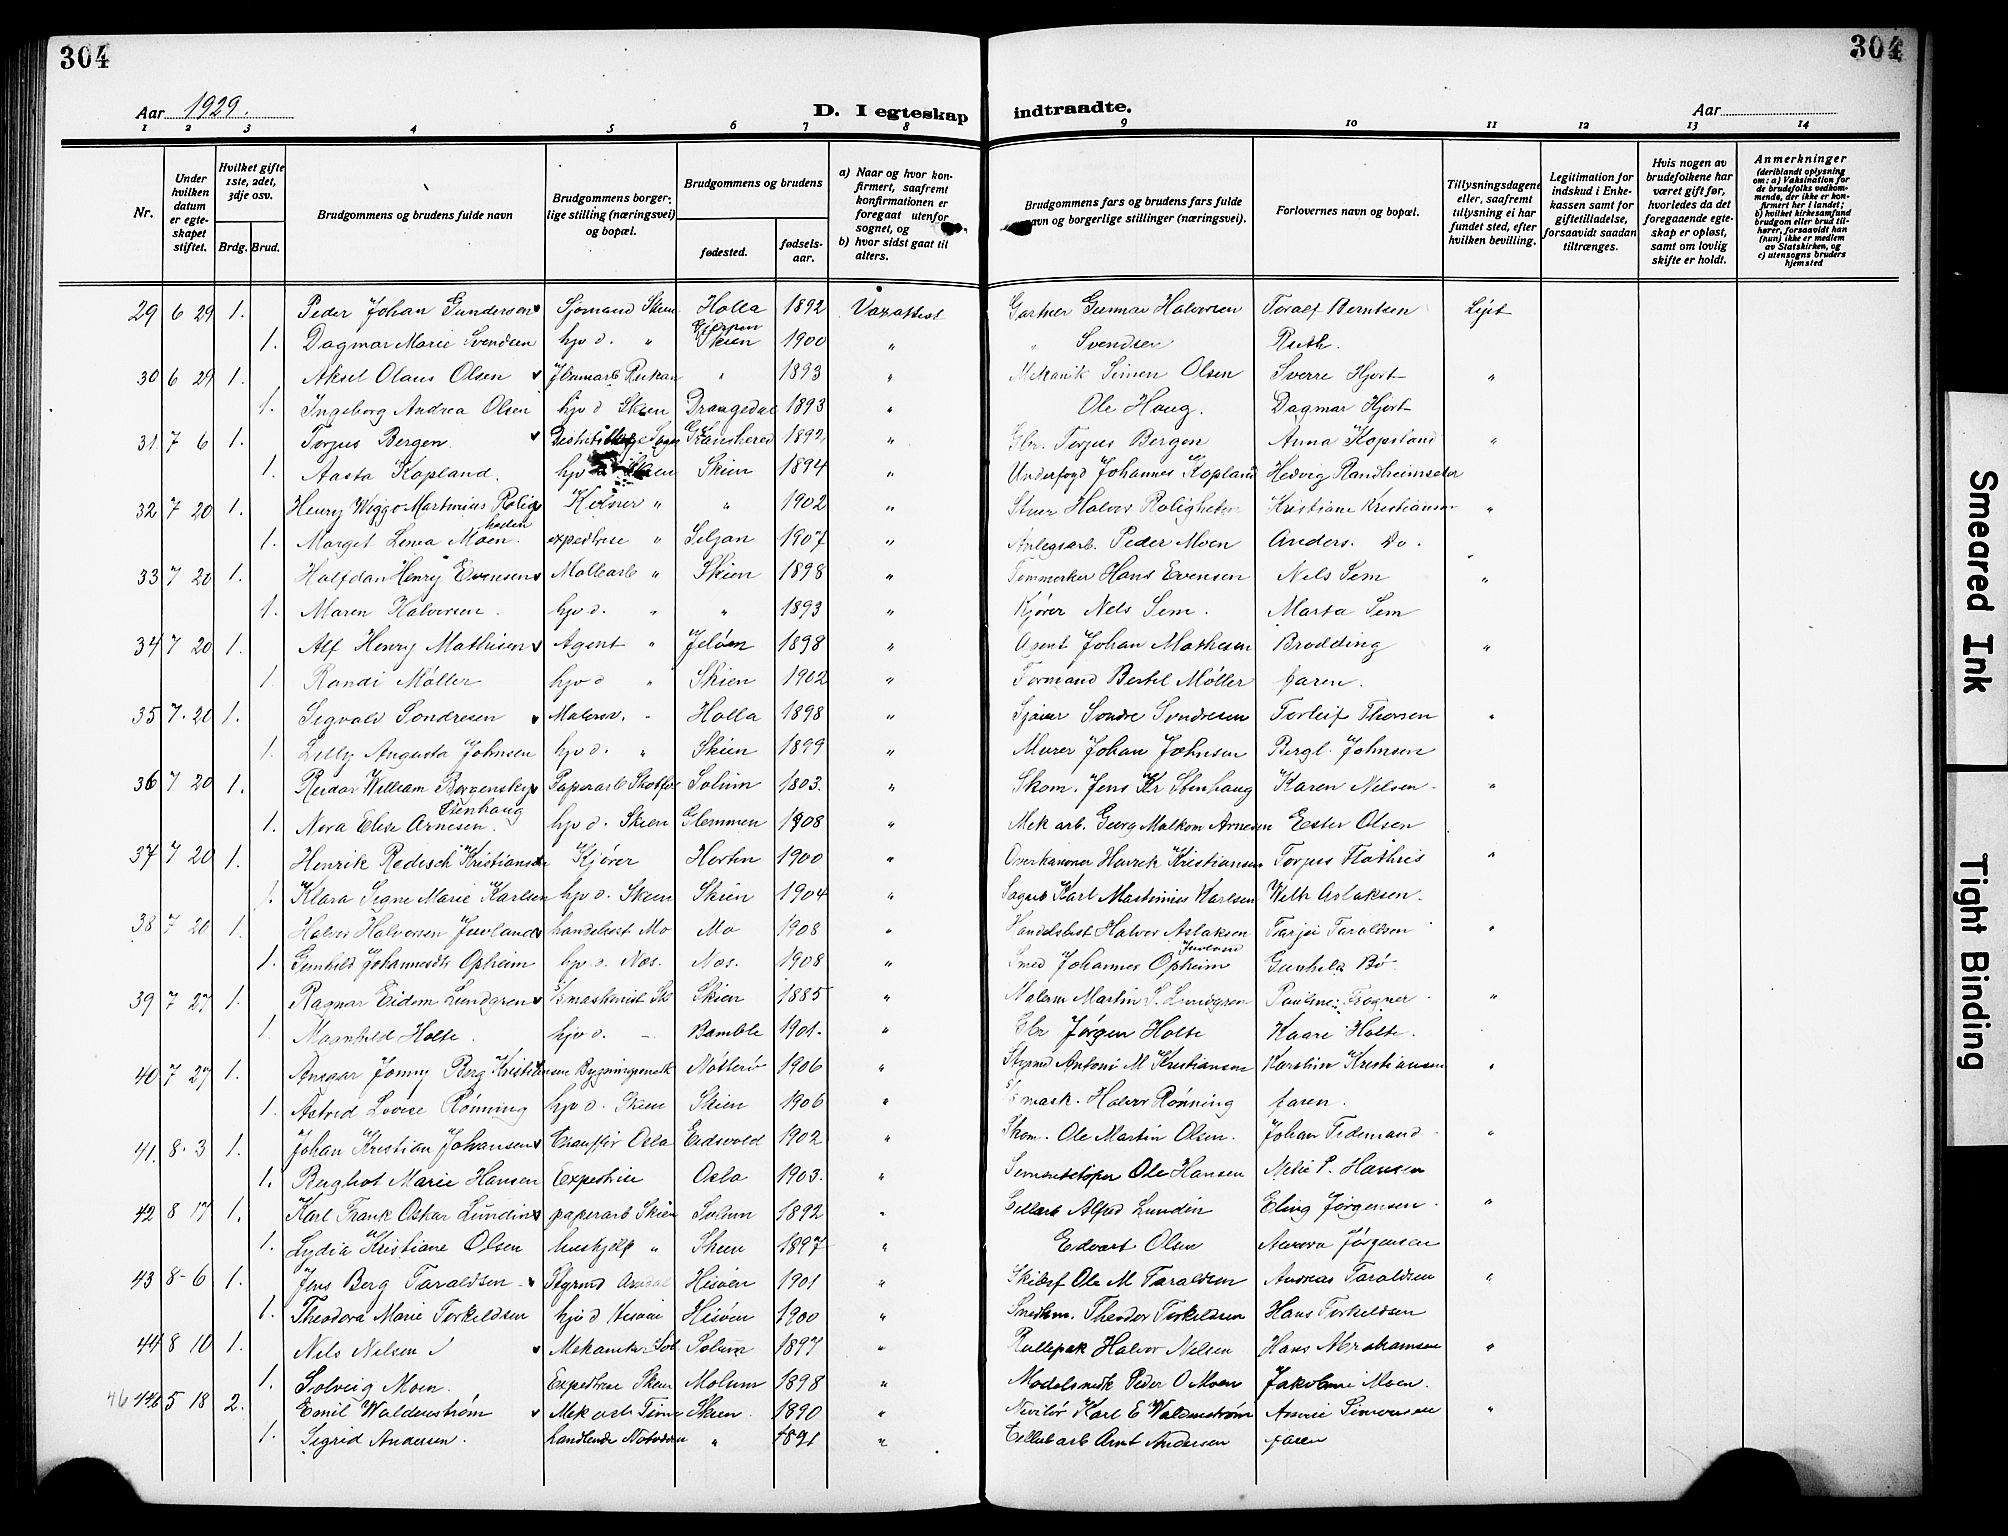 304
304
Aar 1929.
D. I egteskap indtraadte.
Aar
1 2 3 4 5 6 7 8 9 10 11 12 13 14
Nr.
Under hvilken datum er egteskapet stiftet.
Hvilket gifte 1ste, 2det, 3dje osv.
Brdg. Brud.
Brudgommens og brudens fulde navn
Brudgommens borgerlige stilling (næringsvei) og bopæl.
Brudgommens og brudens
fødested.
fødselsaar.
a) Naar og hvor konfirmert, saafremt konfirmationen er foregaat utenfor sognet, og
b) hvor sidst gaat til alters.
Brudgommens fars og brudens fars fulde navn og borgerlige stillinger (næringsvei).
Forlovernes navn og bopæl.
Tillysningsdagene eller, saafremt tillysning ei har fundet sted, efter hvilken bevilling.
Legitimation for indskud i Enkekassen samt for giftetilladelse, forsaavidt saadan tiltrænges.
Hvis nogen av brudefolkene har været gift før, hvorledes da det foregaaende egteskap er opløst, samt om lovlig skifte er holdt.
Anmerkninger (deriblandt oplysning om: a) Vaksination for de brudefolks vedkommende, der ikke er konfirmert her i landet; b) hvilket kirkesamfund brudgom eller brud tilhører, forsaavidt han (hun) ikke er medlem av Statskirken, og c) utensogns bruders hjemsted
29 6 29 1. Peder Johan Gunderson Sjømand Skien Holla 1892 Vaxattest Gartner Gunnar Halvorsen Toralf Berntsen Lyst
1. Dagmar Marie Svendsen hjv d. " Gjerpen Skien 1900 " " Svendsen Ruth.
30 6 29 1. Aksel Olaus Olsen Rukan " 1893 " Mekanik Simen Olsen Sverre Hjort "
1. Ingeborg Andrea Olsen hjv d Skien Drangedal 1893 Ole Haug. Dagmar Hjort
31 7 6 1. Torjus Bergen. 1892 " Gbr. Torjus Bergen Anna Kopsland "
1. Aasta Kopland. hjv d Skien Skien 1894 " Johannes Kopland Hedvig Randheimseter
32 7 20 1. Henry Wiggo Martinius Roligheden Kelner " " 1902 " Halvor Roligheten Kristiane Kristiansen "
1. Marget Linea Moen. expeditrise " Seljan 1907 " Anlegsarb. Peder Moen Anders. Do.
33 7 20 1. Halfdan Henry Evensen Møllearb " Skien 1898 " Tømmerker Hans Evensen Nels Sem "
1. Maren Halvorsen. hjv d. " " 1893 " Kjører Nels Sem. Marta Sem
34 7 20 1. Alf Henry Mathisen Agent " Jeløen 1898 " Agent Johan Mathesen Brodding "
1. Randi Møller hjv d " Skien 1902 " Formand Bertel Møller faren.
35 7. 20 1. Sigvald Sondresen Malersv. " Holla 1898 " Sondre Sondresen Torleif Thorsen "
1. Lilly Augusta Johnsen hjv d. " Skien 1899 " Murer Johan Johnsen Bergl. Johnsen
36 7 20 1. Reidar William Borgenskys Stenhaug Paperarb Skotfo Solum 1803. " Skom. Jens Kr Stenhaug Karen Nelsen "
1. Nora Elise Arnesen. hjv d. Skien Glemmen 1908 " Mek arb. Georg Malkom Arnesen Ester Olsen
37 7 20 1. Henrik Rodesch Kristiansen Kjører Horten 1900 " Overkanoner Henrik Kristiansen Torjus Flathus "
1. Klara Signe Marie Karlsen hjv d. Skien Skien 1904 " Sagarb Karl Martinius Karlsen Vilh Aslaksen.
38 7 20 1. Halvor Halvorsen Juvland handelsbest Mo Mo 1908 " Handelsbest Halvor Aslaksen Juvland Tarjei Taraldsen "
1. Gunhild Johannesdtr Opheim hjv. d. Nes. Nes. 1908 " Smed Johannes Opheim Gunhild Bø
39 7 27 1. Ragnar Eidem Lundgren D/S maskinist Sk Skien 1885 " Malerm Martin S. Lundgren Pauline Fragner "
1. Magnhild Holte. hjv d. " Bamble 1901. " Gbr Jørgen Holte Kaare Holte.
40 7 27 1. Ansgar Jonny Berg Kristiansen Bygningsnek Nøtterø 1906 " Styrmd Antoni M Kristiansen Karstin Kristiansen "
1. Astrid Lovise Rønning hjv d. Skien Skien 1906 " D/S mask. Halvor Rønning faren.
41. 8. 3 1. Johan Kristian Johansen Chauffør Oslo Eidsvold 1902 " Skom. Ole Martin Olsen. Johan Tidemand "
1. Borghot Marie Hansen Expedtrise Oslo 1903. " Ole Hansen Nelie P. Hansen
42 8 17 1. Karl Frank Oskar Lundin paperarb Skien Solum 1892 " Cellarb Alfred Lundin Eling Jørgensen. "
1. Lydia Kristiane Olsen hushjelp " Skien 1897 " Edvart Olsen Aurora Jørgensen
43 8- 6 1. Jens Berg Taraldsen Styrmd Arendal Hisøen 1901 " Skibsf Ole M Taraldsen Andreas Taraldsen "
1. Theodora Marie Torkeldsen hjv d Hisøie Hisøen 1900 " Smedkm. Theodor Torkildsen Hans Torkeldsen
44 8 10 1. Nils Nilsen Mekaniker Sol Solum 1897 " Rullepak Halvor Nilsen Hans Abrahamsen "
1. Solveig Moen. Expedtrise Skien Molum 1898 " Modelsnedk Peder O Moen Jakobine Moen.
46 446 5 18 2. Emil Waldenstrøm Mek arb Tinne Skien. 1890 " Karl E Waldenstrøm Simonsen "
1. Sigrid Andersen. handlende Notodden " 1891 " Cellub arb Arnt Andersen faren
Smeared Ink
Tight Binding